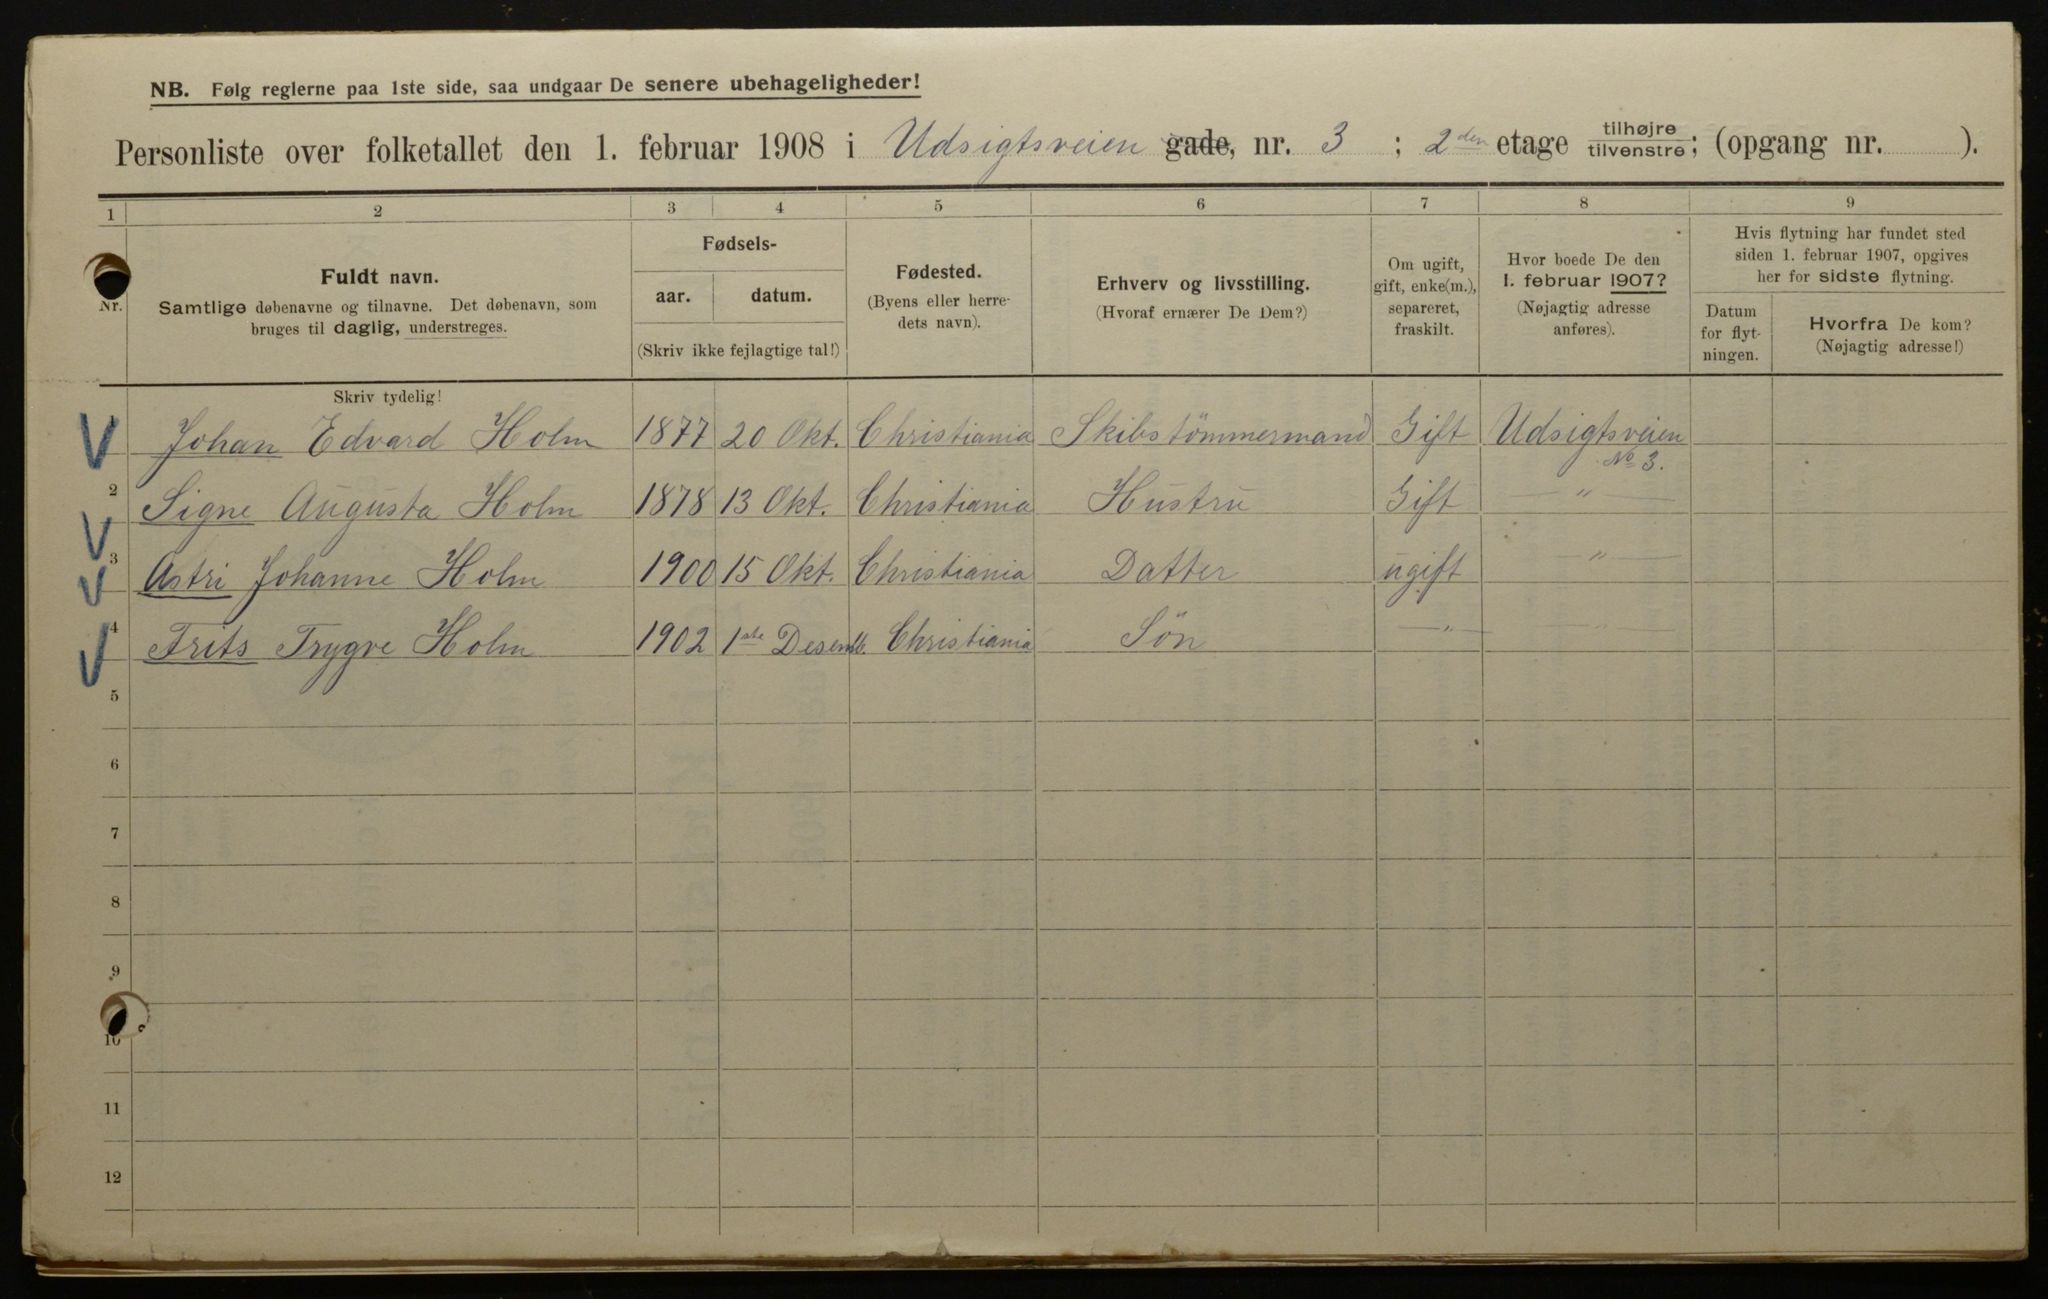 NB. Følg reglerne paa 1ste side, saa undgaar De senere ubehageligheder!
Personliste over folketallet den 1. februar 1908 i Udsigtsveien gade, nr. 3 ; 2den etage tilhøjre tilvenstre; (opgang nr. ).
1 2 3 4 5 6 7 8 9
Nr.
Fuldt navn.
Samtlige døbenavne og tilnavne. Det døbenavn, som
bruges til daglig, understreges.
Fødsels-
aar. datum.
(Skriv ikke fejlagtige tal!)
Fødested.
(Byens eller herre-
dets navn).
Erhverv og livsstilling.
(Hvoraf ernærer De Dem?)
Om ugift,
gift, enke(m.),
separeret,
fraskilt.
Hvor boede De den
1. februar 1907?
(Nøjagtig adresse
anføres).
Hvis flytning har fundet sted
siden 1. februar 1907, opgives
her for sidste flytning.
Datum
for flyt-
ningen.
Hvorfra De kom?
(Nøjagtig adresse!)
Skriv tydelig!
1 Johan Edvard Holm 1877 20 Okt. Christiania Skibstömmermand Gift Udsigtsveien
No 3.
2 Signe Augusta Holm 1878 13 Okt. Christiania Hustru Gift — " —
3 Astri Johanne Holm 1900 15 Okt. Christiania Datter ugift — " —
4 Frits Trygve Holm 1902 1ste Desemb. Christiania Sön — " — — " —
5
6
7
8
9
10
11
12